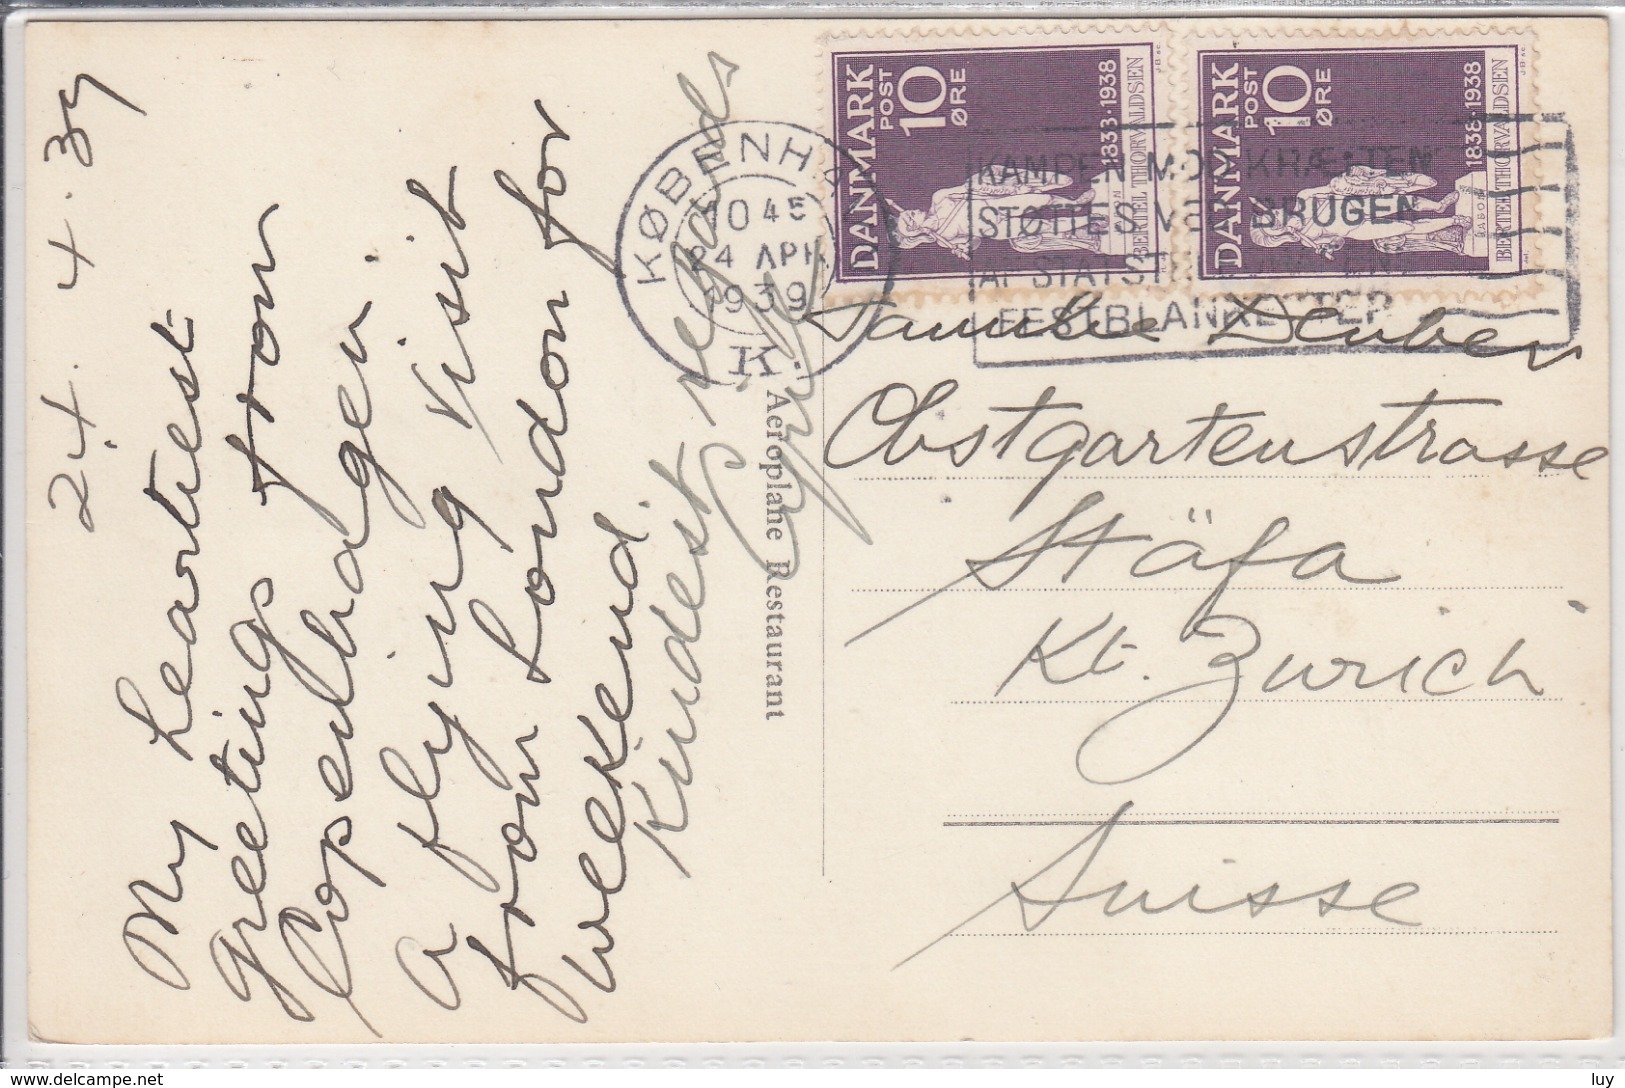 24. 4. 39
My heartiest
greetings from
Copenhagen.
a flying visit
from London for
weekend.
Kindest regards
Aeroplane Restaurant
KØBENHA
10 45
24 APR
1939
K.
DANMARK
POST
10
ØRE
1838·1938
BERTEL THORVALDSEN
DANMARK
POST
10
ØRE
1838·1938
BERTEL THORVALDSEN
KAMPEN MOD KRÆFTEN
STØTTES VED BRUGEN
AF STATST
FESTBLANKETTER
Familie Deuber
Obstgartenstrasse
Stäfa
Kt. Zurich
Suisse
www.delcampe.net
luy